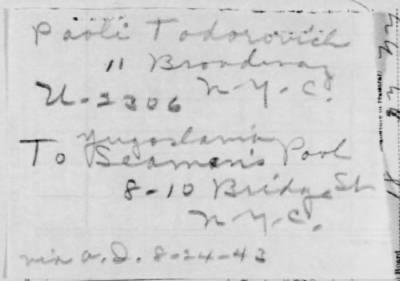 Paoli Todorovich
11 Broadway
N-Y-C.
U-2206
Yugoslavia
To Seamen's Pool
8-10 Bridge St
N-Y-C.
via a.D. 8-24-43